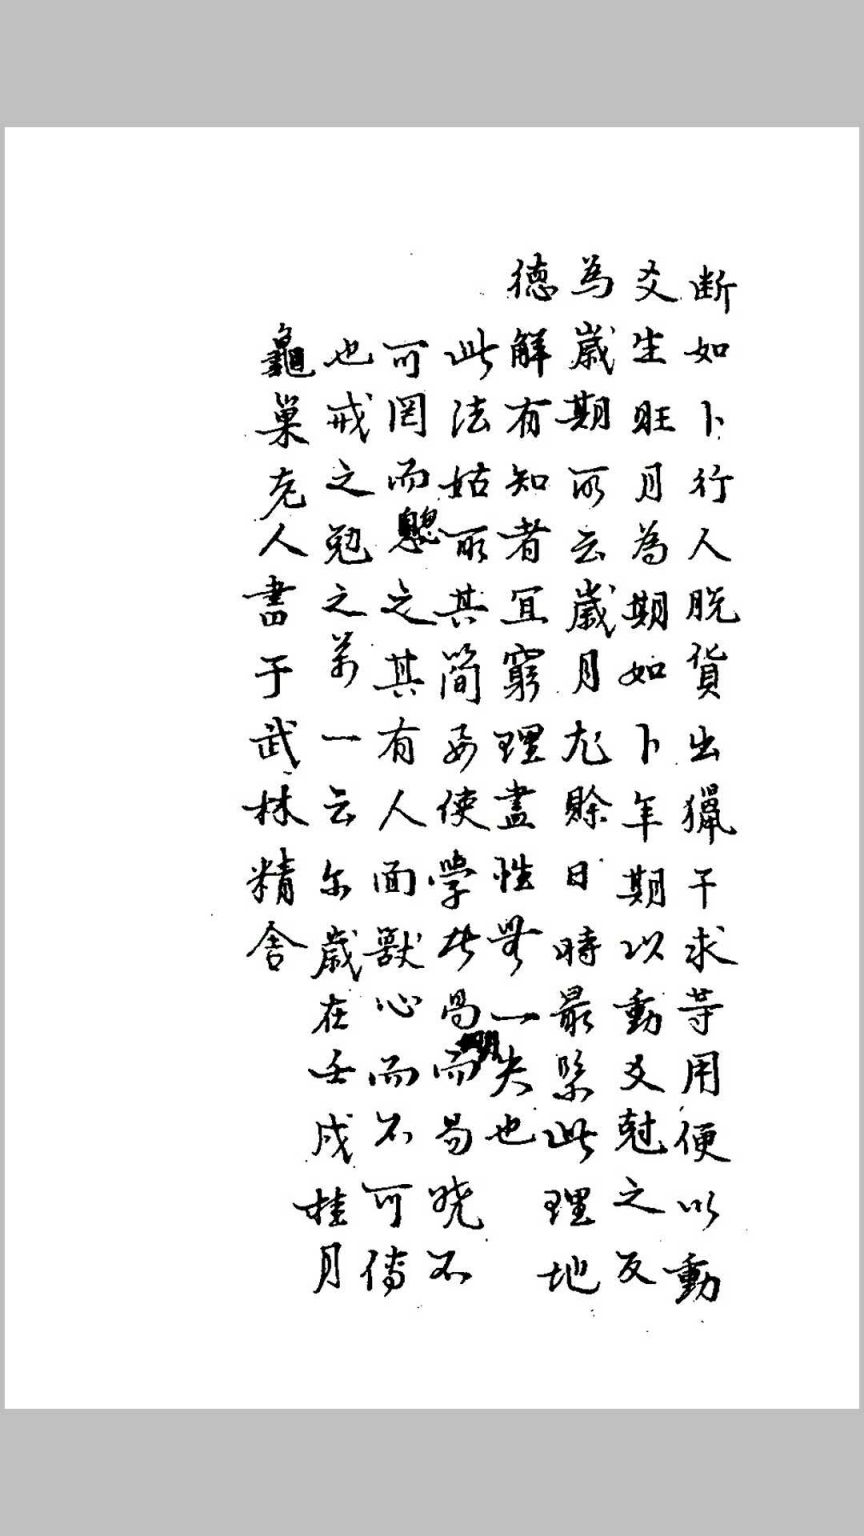 断如卜行人脱貨出獵干求等用便以動
爻生旺月為期如卜年期以動爻尅之反
為歲期所云歲月尤賒日時最緊此理地
德解有知者宜窮理盡性無一失也
此法姑取其简要使學者易而易曉不
可罔而忽之其有人面獸心而不可傳
也戒之勉之萬一云尔歲在壬戌桂月
龜巢老人書于武林精舍